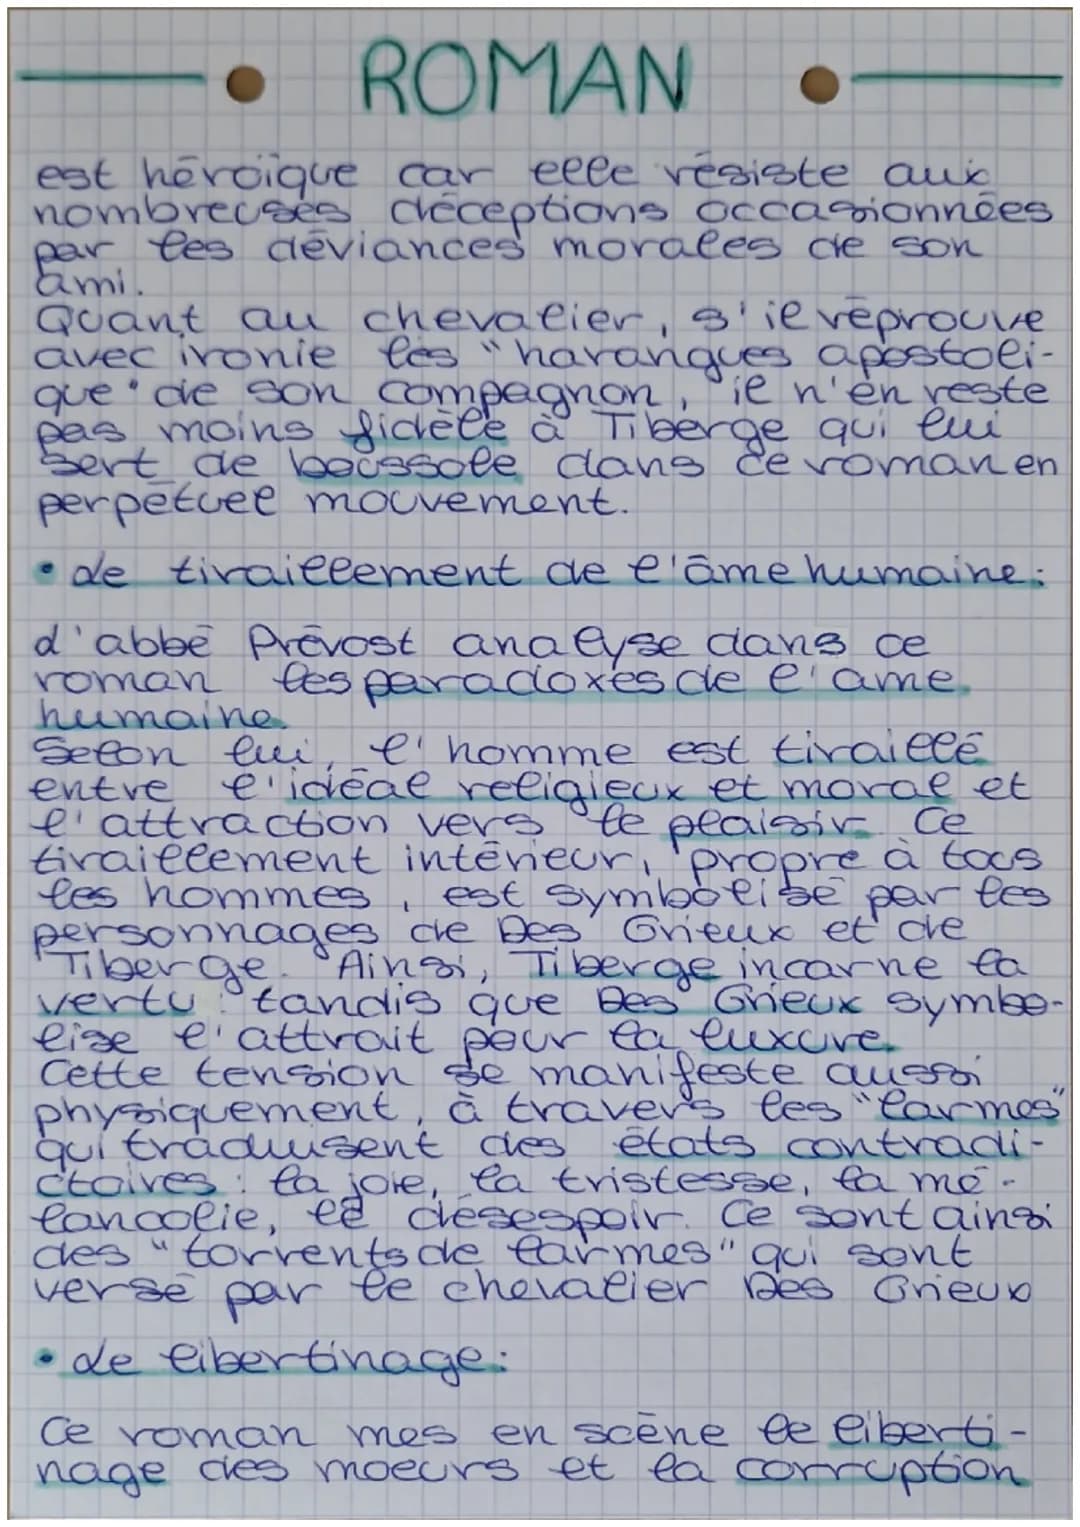 ROMAN
est héroïque car elle résiste aux
nombreuses déceptions occasionnées
par les déviances morales de son
ami.
Quant au chevalier, s'il réprouve
avec ironie les "harangues apostoli-
que" de son compagnon, il n'en reste
pas moins fidèle à Tiberge qui lui
sert de boussole dans ce roman en
perpétuel mouvement.
• Le tiraillement de l'âme humaine:
L'abbé Prévost analyse dans ce
roman les paradoxes de l'ame
humaine.
Selon lui, l'homme est tiraillé
entre l'idéal religieux et moral et
l'attraction vers le plaisir. Ce
tiraillement intérieur, propre à tous
les hommes, est symbolisé par les
personnages de Des Grieux et de
Tiberge. Ainsi, Tiberge incarne la
vertu tandis que Des Grieux symbo-
lise l'attrait pour la luxure.
Cette tension se manifeste aussi
physiquement, à travers les "larmes"
qui traduisent des états contradi-
ctoires: la joie, la tristesse, la mé-
lancolie, le désespoir. Ce sont ainsi
des "torrents de larmes" qui sont
versé par le chevalier Des Grieux
• Le libertinage:
Ce roman mes en scène le liberti-
nage des moeurs et la corruption